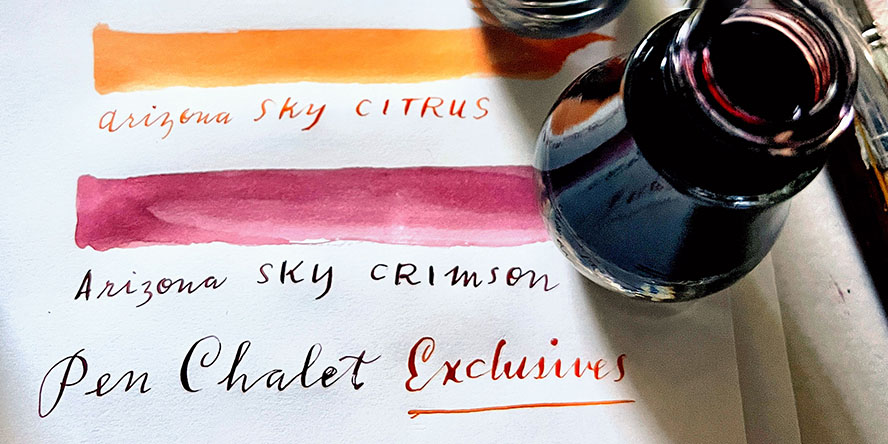 arizona SKY CITRUS
Arizona SKY CRIMSON
Pen Chalet Exclusives